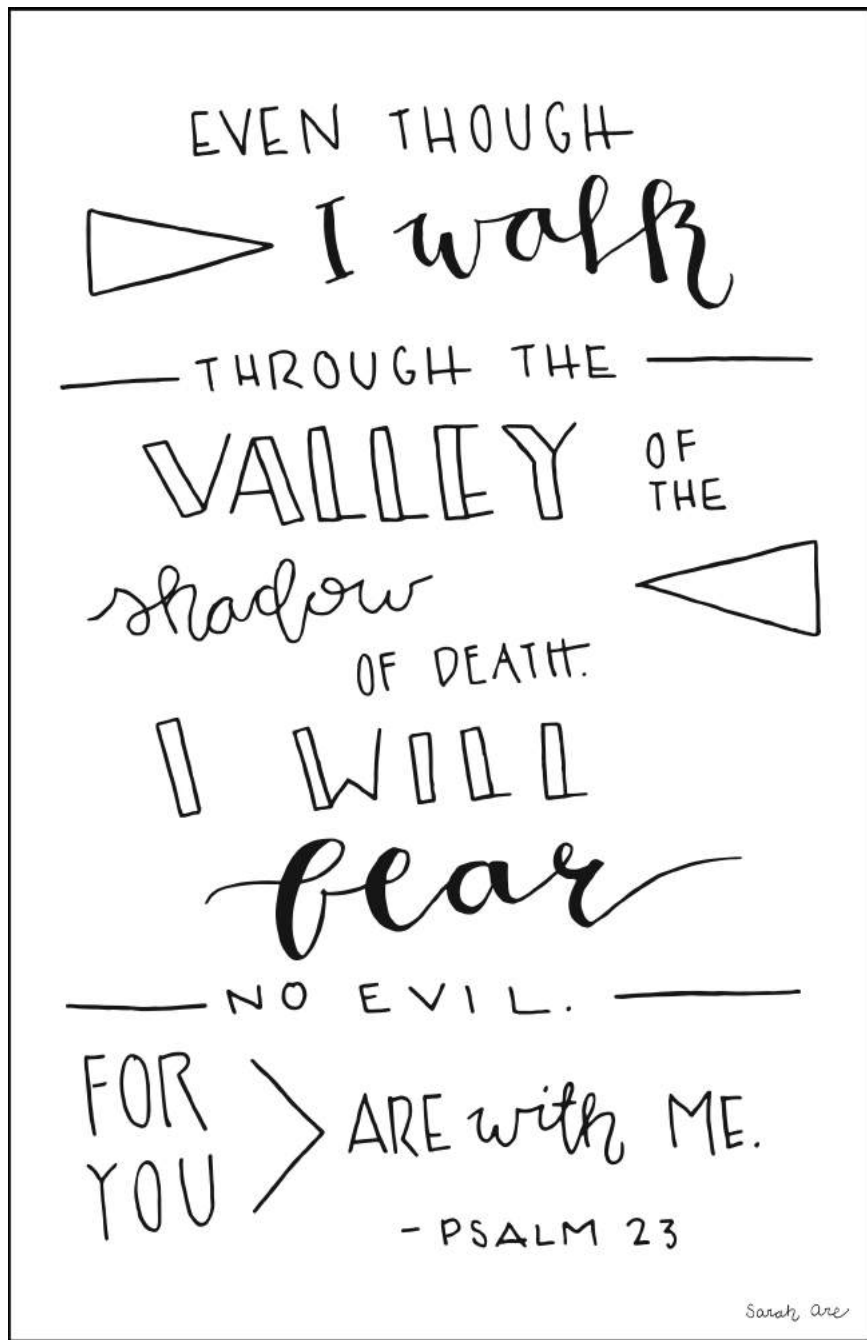 EVEN THOUGH
I walk
THROUGH THE
VALLEY OF
THE
shadow
OF DEATH.
I WILL
fear
NO EVIL.
FOR
YOU
ARE with ME.
- PSALM 23
Sarah Are